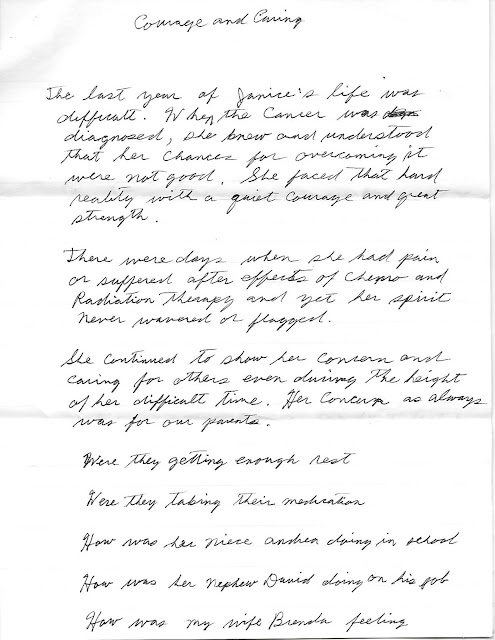 Courage and Caring
The last year of Janice's life was
difficult. When the Cancer was
diagnosed, she knew and understood
that her chances for overcoming it
were not good. She faced that hard
reality with a quiet courage and great
strength.
There were days when she had pain
or suffered after effects of Chemo and
Radiation therapy and yet her spirit
never wavered or flagged.
She continued to show her concern and
caring for others even during the height
of her difficult time. Her concern as always
was for our parents.
Were they getting enough rest
Were they taking their medication
How was her niece Andrea doing in school
How was her nephew David doing on his job
How was my wife Brenda feeling